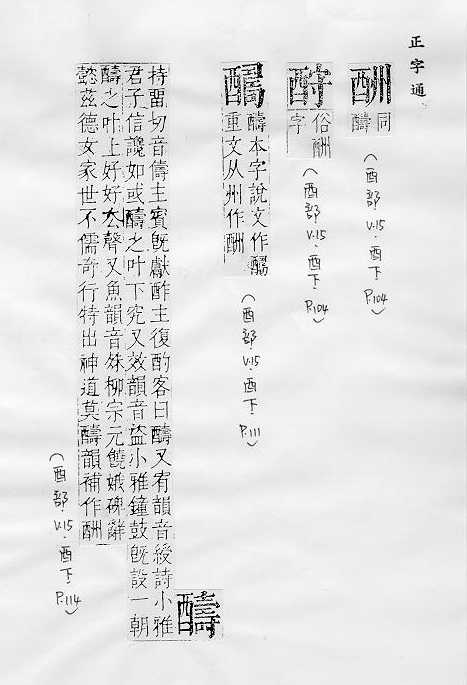 正字通
酬
同
醻
（酉部 V.15．酉下．P.104）
俗酬
字
（酉部 V.15．酉下．P.104）
醻本字說文作
重文从州作酬
（酉部 V.15．酉下．P.111）
醻
持畱切音儔主賓旣獻酢主復酌客曰醻又宥韻音綬詩小雅
君子信讒如或醻之叶下究又效韻音盗小雅鐘鼓旣設一朝
醻之叶上好好厺聲又魚韻音殊柳宗元饒娥碑辭
懿茲德女家世不儒奇行特出神道莫醻韻補作酬
（酉部 V.15．酉下．P.114）